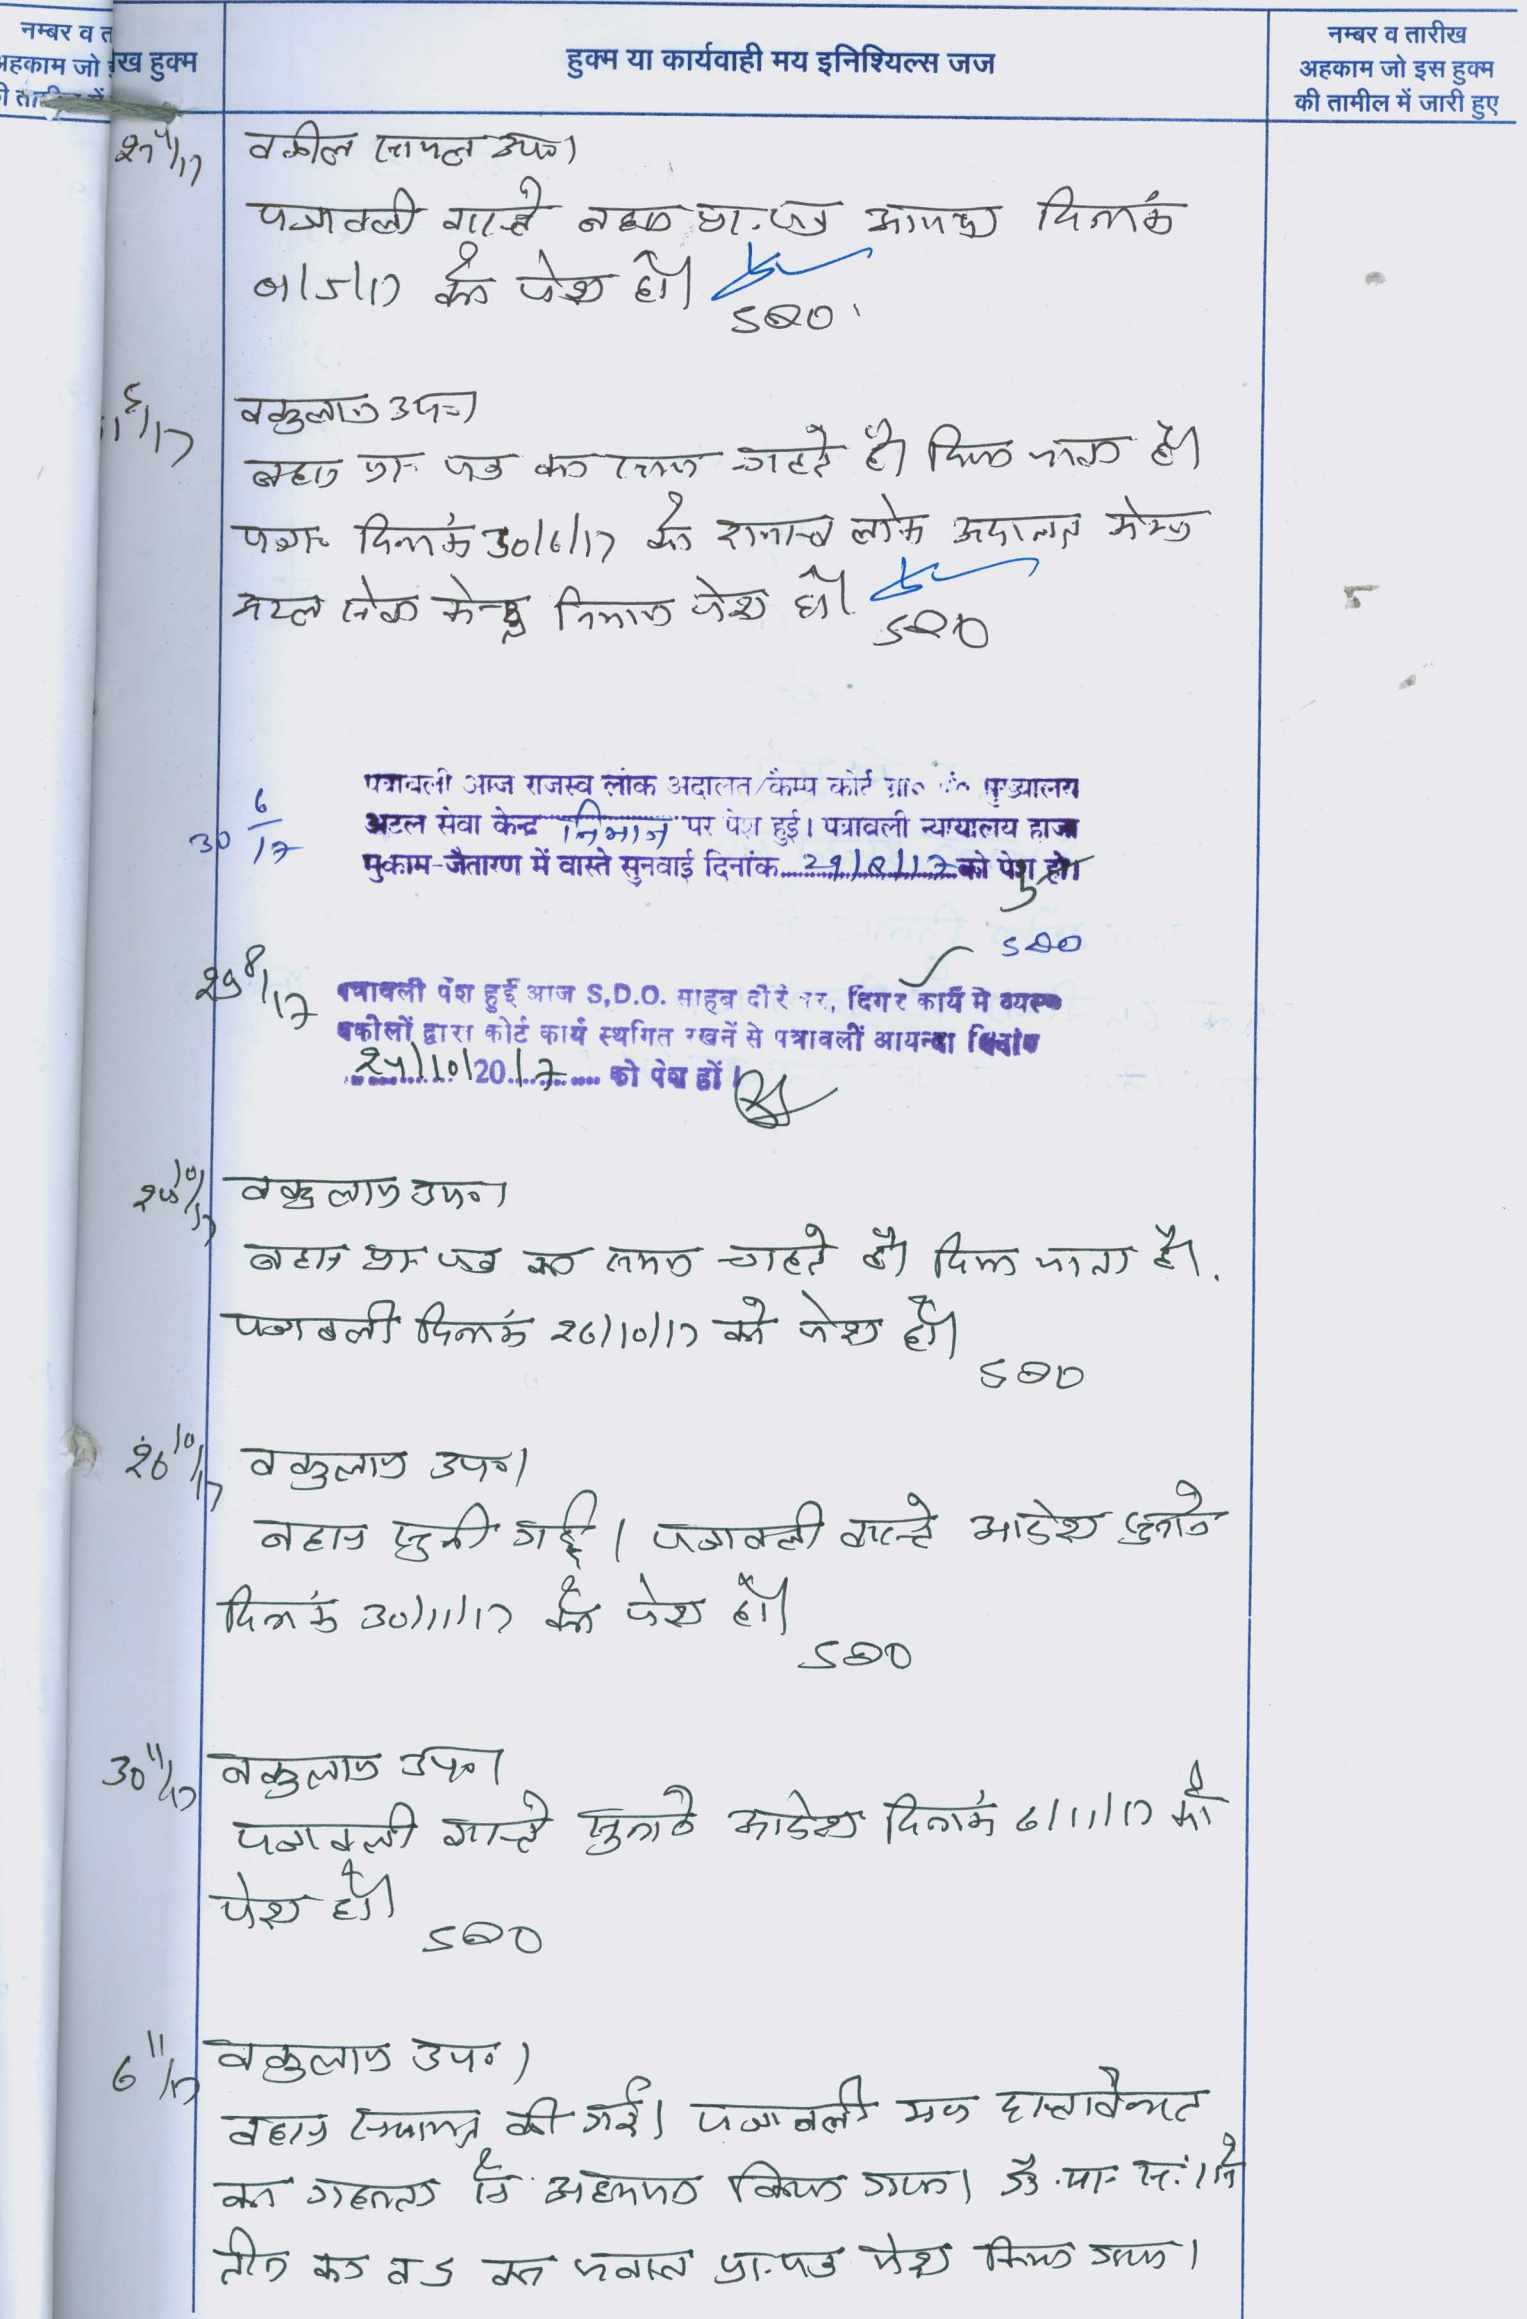 नम्बर व त
अहकाम जो
ी तामील में
ख हुक्म
हुक्म या कार्यवाही मय इनिशियल्स जज
नम्बर व तारीख
अहकाम जो इस हुक्म
की तामील में जारी हुए
वकील उप०।
पत्रावली वास्ते बहस प्रा.पत्र दिनांक
/5/17 को पेश हो। SDO
5/17 वकुलाय उप०।
बहस प्रा- पत्र का समय चाहते है। दिया जाता है।
पत्रा- दिनांक 30/6/17 को राजस्व लोक अदालत केम्प
अटल सेवा केन्द्र निमाज पेश हो। SDO
30 6/17
पत्रावली आज राजस्व लोक अदालत/कैम्प कोर्ट मुख्यालय
अटल सेवा केन्द्र निमाज पर पेश हुई। पत्रावली न्यायालय हाजा
मुकाम-जैतारण में वास्ते सुनवाई दिनांक 29/8/17 को पेश हो।
SDO
29 8/17
पत्रावली पेश हुई आज S.D.O. साहब दौरे पर, दिगर कार्य मे व्यस्त
वकीलों द्वारा कोर्ट कार्य स्थगित रखनें से पत्रावलीं आयन्दा दिनांक
24/10/2017 को पेश हों।
10/17 वकुलाय उप०।
बहस प्रा- पत्र का समय चाहते है। दिया जाता है।
पत्रावली दिनांक 26/10/17 को पेश हो।
SDO
26 10/17 वकुलाय उप०।
बहस सुनी गई। पत्रावली वास्ते आदेश सुनाने
दिनांक 30/11/17 को पेश हो।
SDO
30 11/17 वकुलाय उप०।
पत्रावली वास्ते सुनाने आदेश दिनांक 6/11/17 को
पेश हो।
SDO
6 11/17 वकुलाय उप०।
बहस समाप्त की गई। पत्रावली मय दास्तावेजात
का गहनता से अध्ययन किया गया।
का जवाब प्रा.पत्र पेश किया गया।